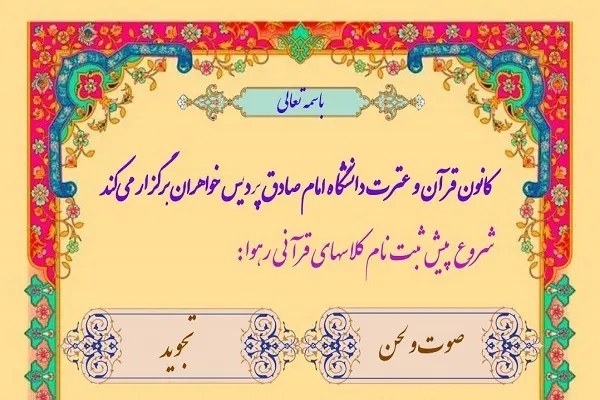 باسمه تعالی
کانون قرآن و عترت دانشگاه امام صادق پردیس خواهران برگزار می‌کند
شروع پیش ثبت نام کلاسهای قرآنی رهوا:
صوت و لحن
تجوید